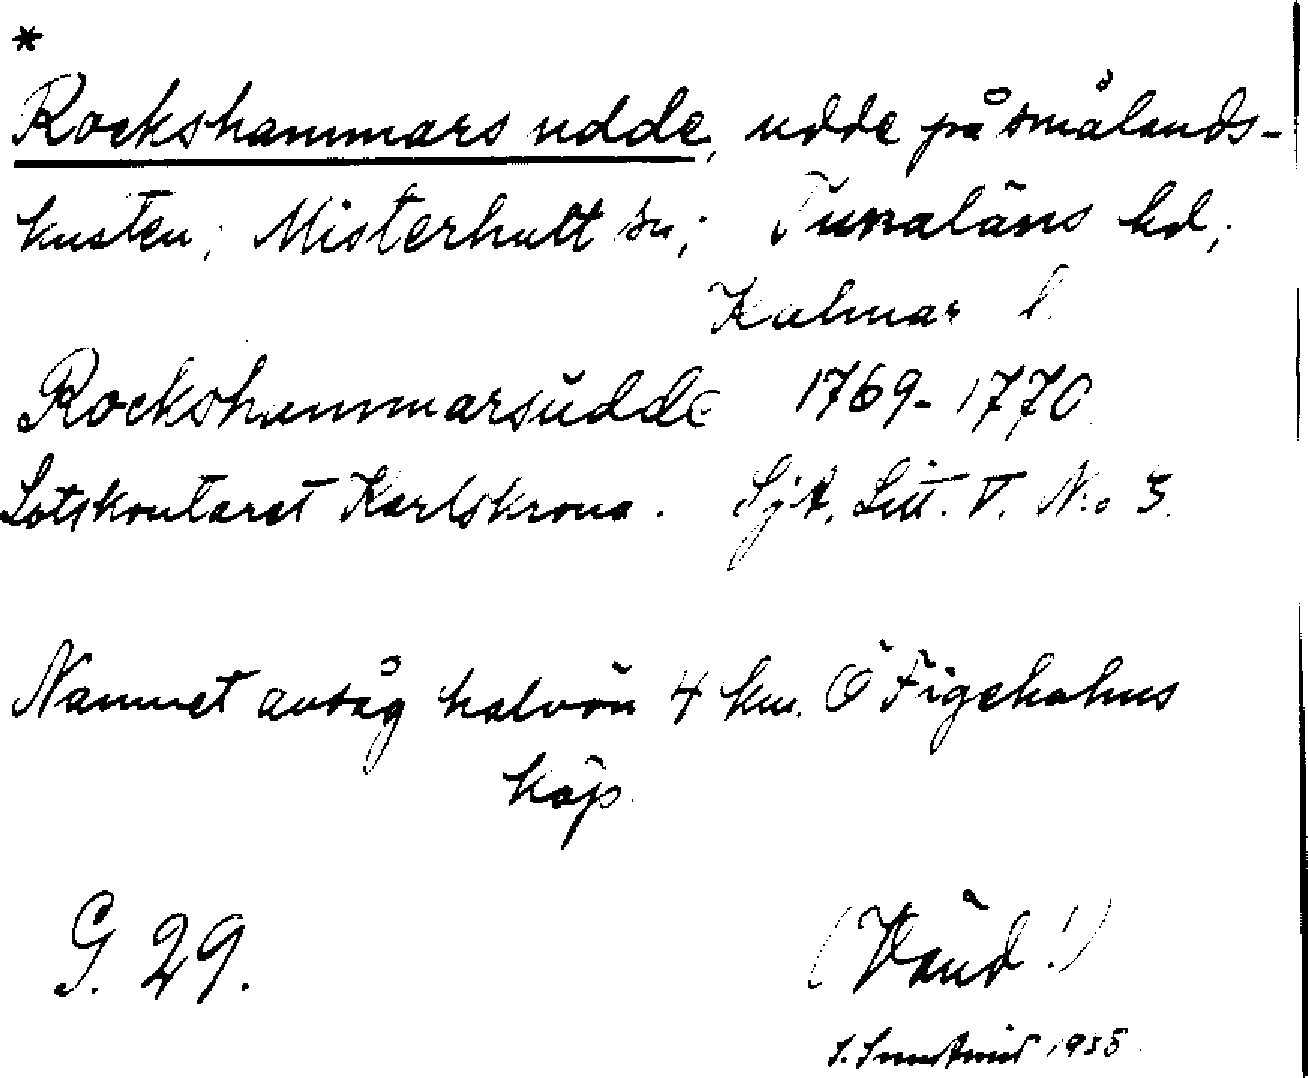 *
Rockshammars udde, udde på Smålands-
kusten, Misterhult sn; Tunaläns hd,
Kalmar l.
Rockshammarsudde 1769-1770.
Lotskontoret Karlskrona. SjA, Litt. V. No 3.
Namnet avsåg halvön 4 km. Ö Figeholms
köp.
G. 29.
(Vänd!)
1935